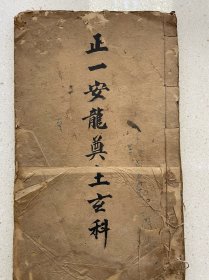 正一安龍奠土玄科